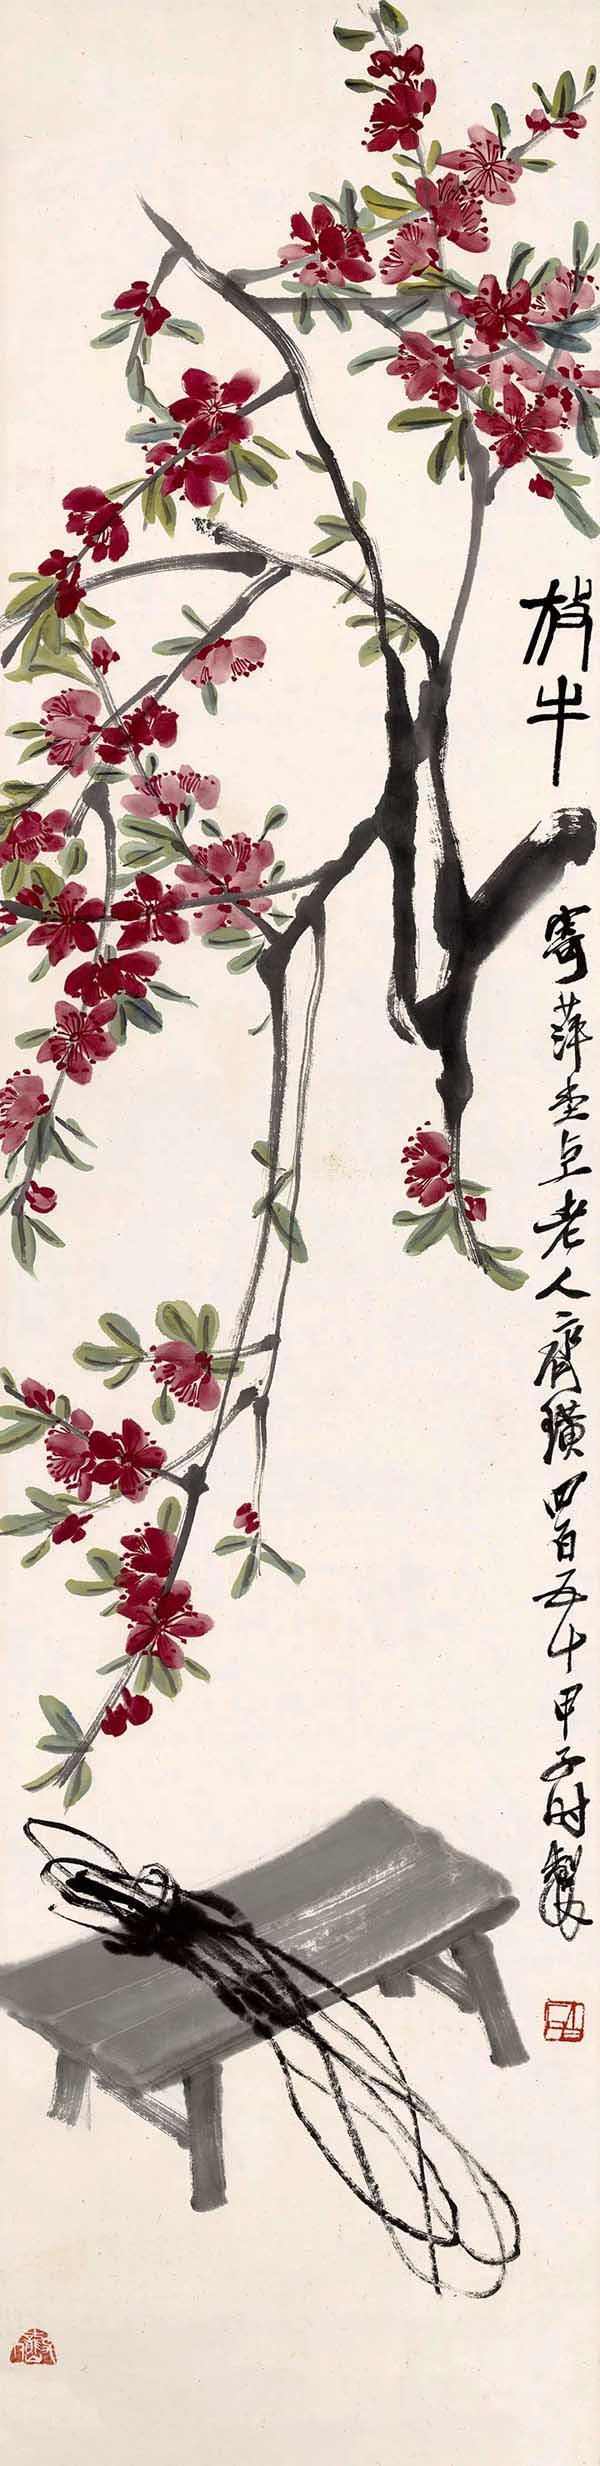 放牛
寄萍堂上老人齊璜四百五十甲子时製